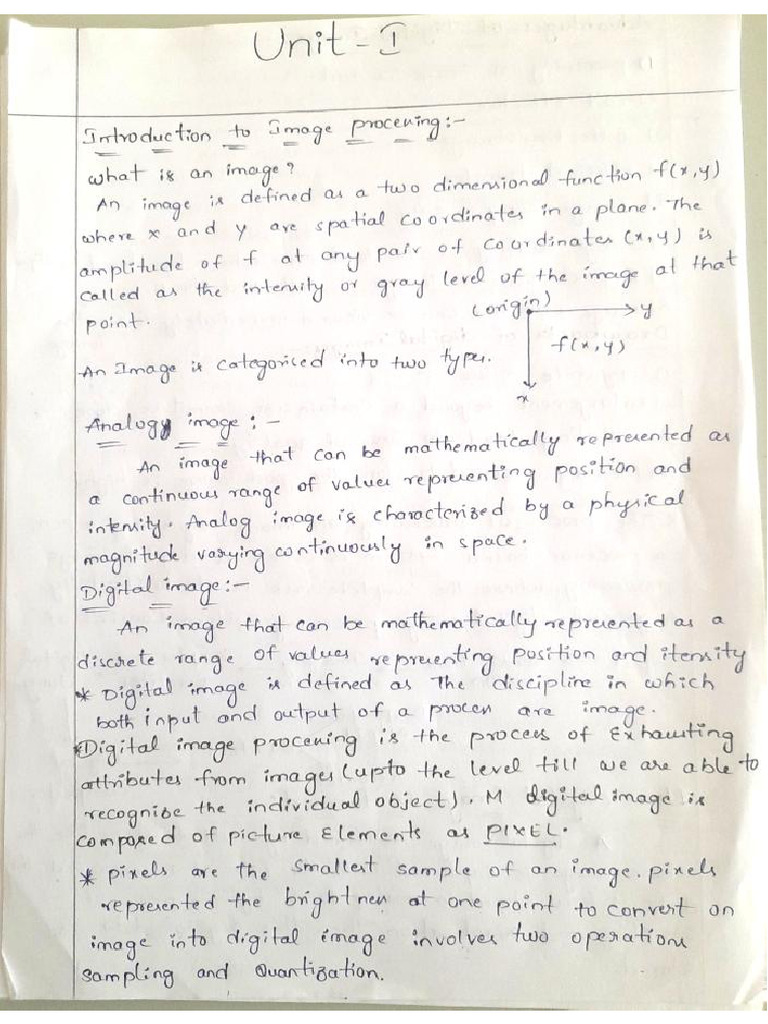 Unit - I
Introduction to Image processing:-
what is an image?
An image is defined as a two dimensional function f(x,y)
where x and y are spatial coordinates in a plane. The
amplitude of f at any pair of coordinates (x,y) is
called as the intensity or gray level of the image at that
point.
(origin) y
f(x,y)
An Image is categorised into two types.
x
Analogy image :-
An image that can be mathematically represented as
a continuous range of values representing position and
intensity. Analog image is characterized by a physical
magnitude varying continuously in space.
Digital image:-
An image that can be mathematically represented as a
discrete range of values representing position and itensity
* Digital image is defined as The discipline in which
both input and output of a process are image.
* Digital image processing is the process of Exhausting
attributes from images (upto the level till we are able to
recognise the individual object). M digital image is
composed of picture Elements as PIXEL.
* pixels are the smallest sample of an image. pixels
represented the brightness at one point to convert an
image into digital image involves two operations
sampling and Quantization.